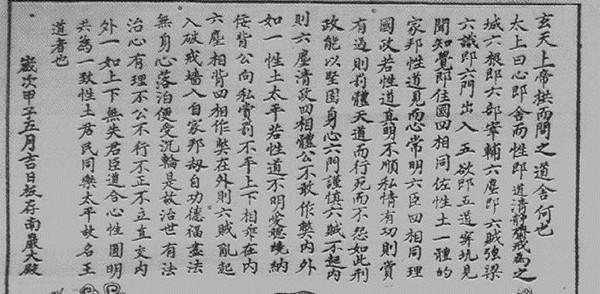 玄天上帝拱而問之道舍何也
太上曰心即舍而性即道清靜齋戒為之
城六根即六部宰輔六塵即六賊強梁
六識即六門出入五欲即五道穽坑見
聞知覺即住國四相同佐性土一種的
家邦性道見而心常明六臣四相同理
國政若性道真明不順私情有功則賞
有過則罰體天道而行死而不怨如此刑
政能以堅固身心六門謹慎六賊不起內
則六塵清政四相體公不敢作獘內外
如一性土太平若性道不明愛恩境納
佞背公向私賞罰不平上下相乖在內
六塵相背四相作獘在外則六賊亂起
入破戒墻入自家邦刼自功德福盡法
無身心落泊便受沉輪是故治世有法
治心有理不公不行不正不立直交內
外一如上下無失君臣道合心性圓明
共為一致性土君民同樂太平故名王
道者也
歲次甲子五月吉日板存南嚴大殿